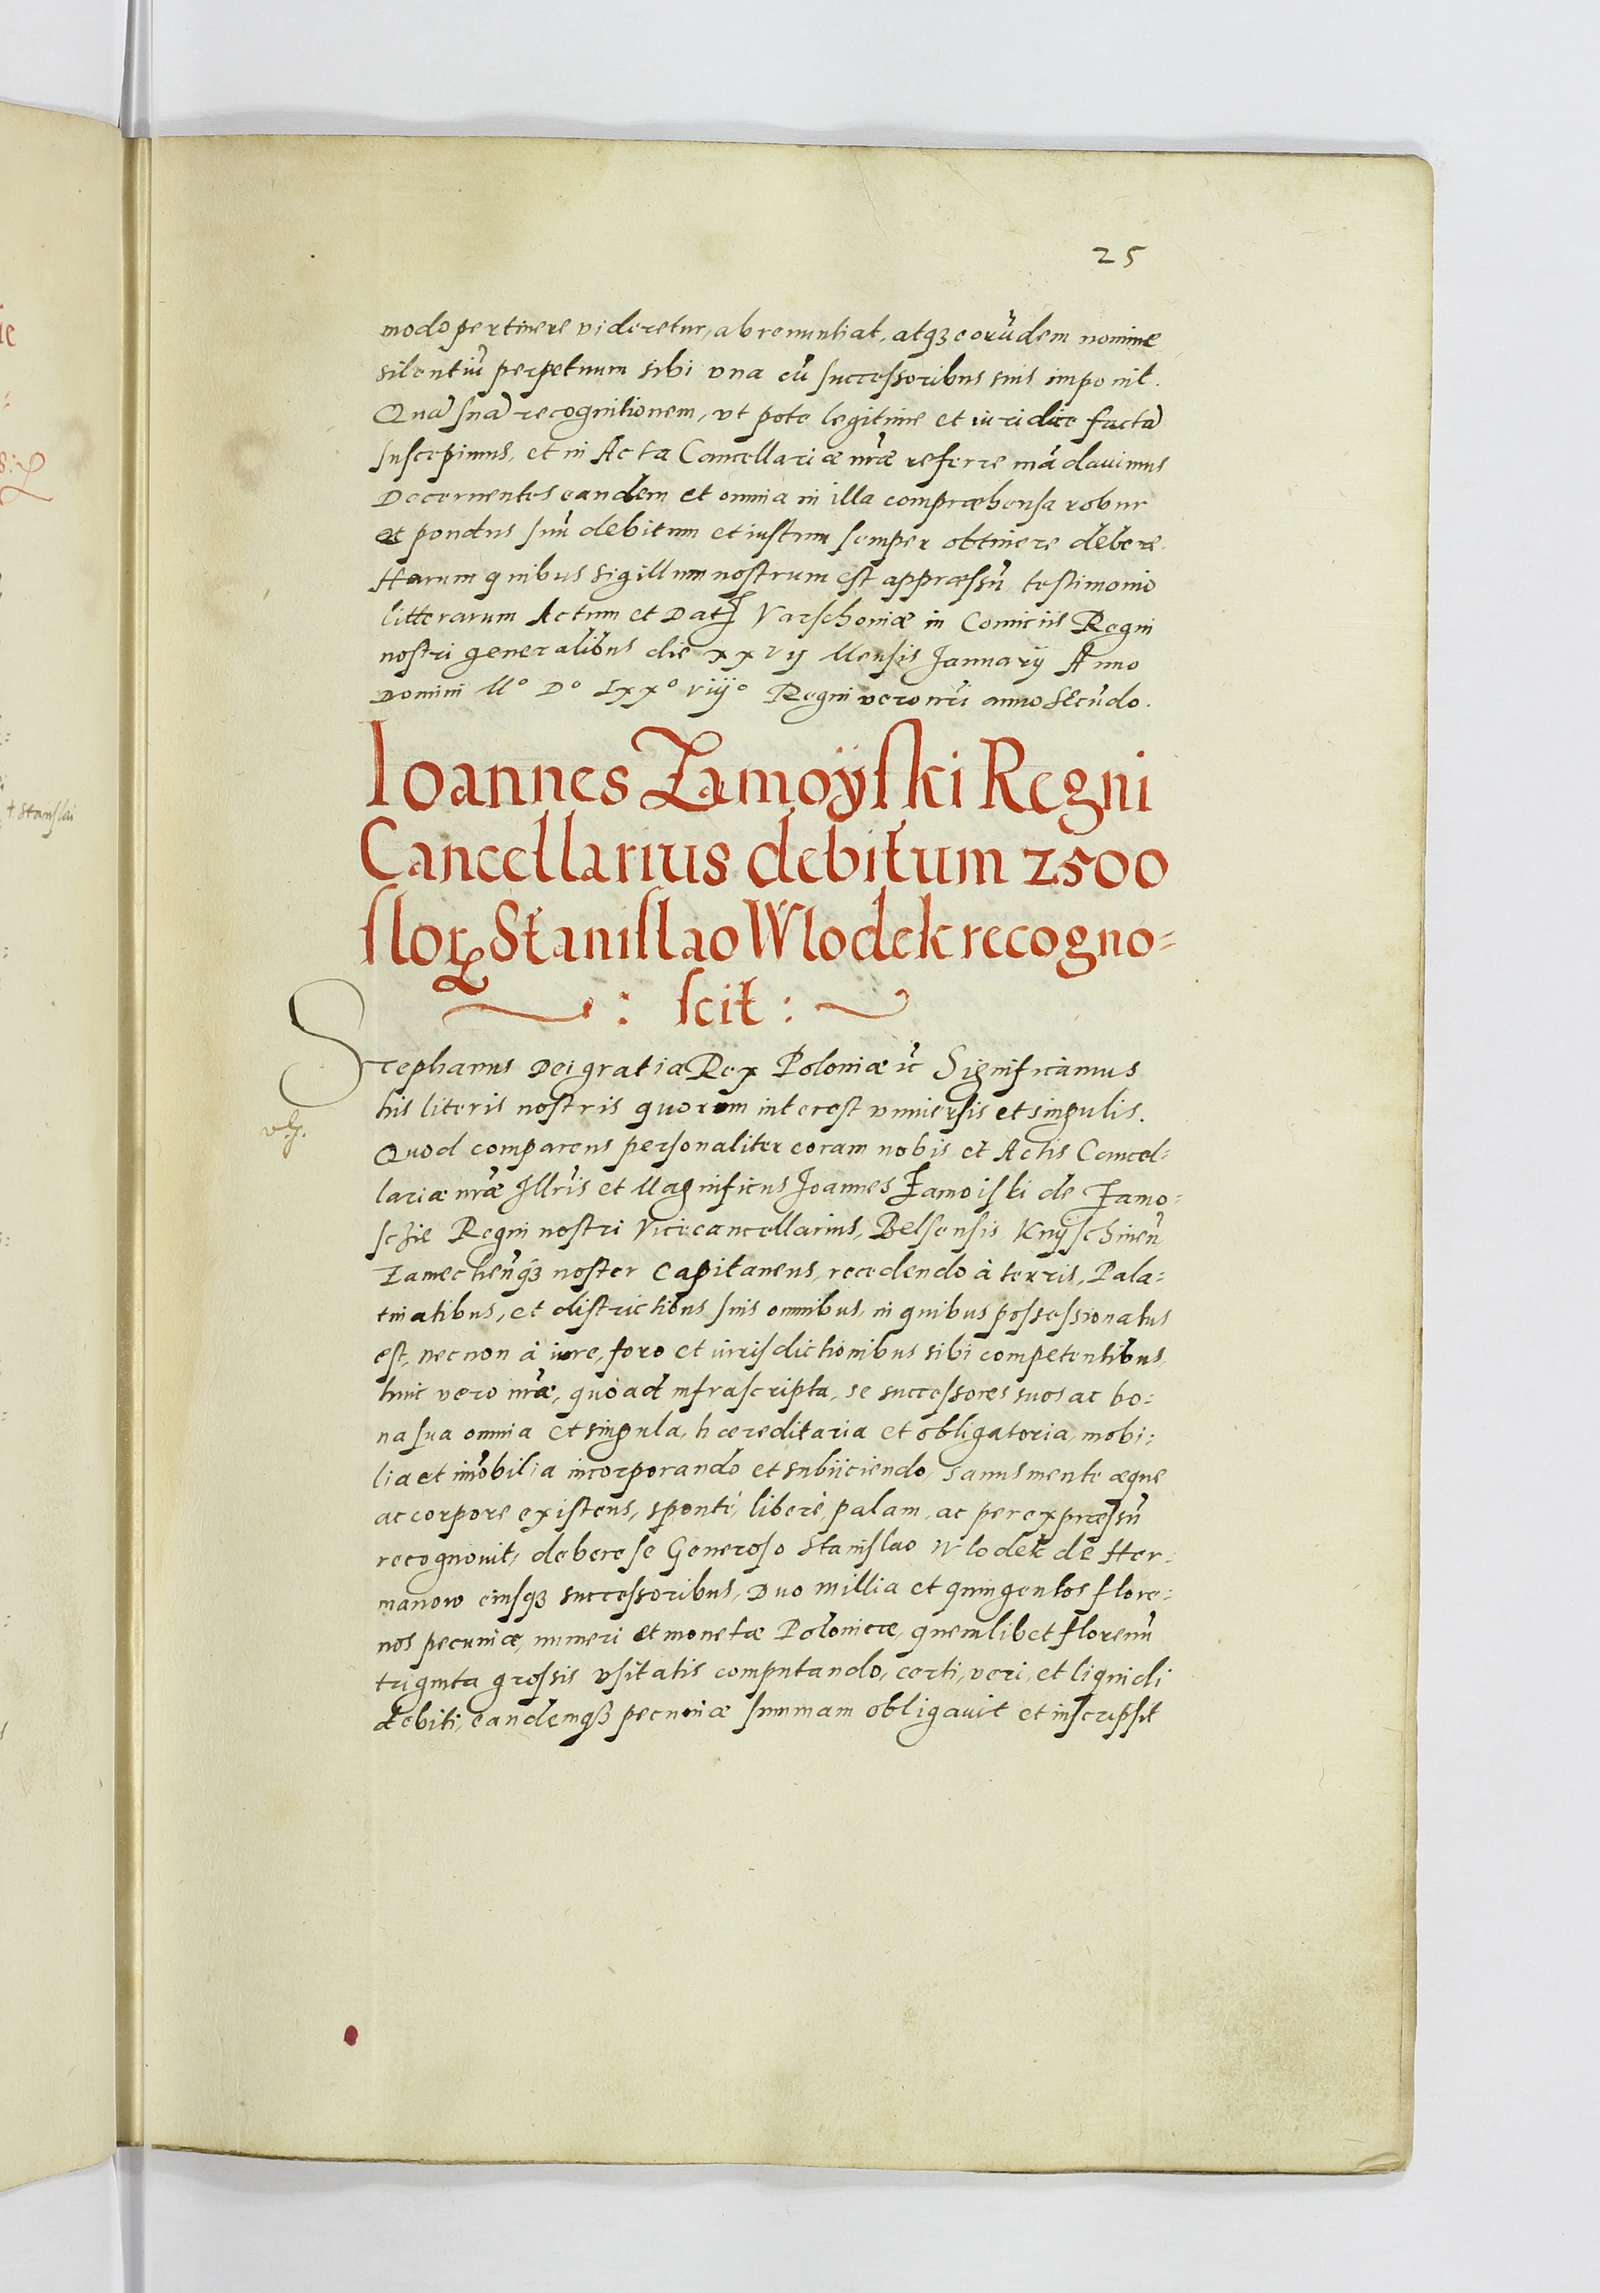 25
modo pertinere videretur, abrenuntiat, atqʒ eorūdem nomine
silentiū perpetuum sibi vna cū successoribus suis imponit.
Quā suā recognitionem, vt pote legitime et iuridice factā
suscepimus, et in Acta Cancellariæ nr̃æ referre mādavimus
Decernentes eandem et omnia in illa compræhensa robur
et pondus suū debitum et iustum semper obtinere debere.
Harum quibus sigillum nostrum est appræssū testimonio
litterarum Actum et Datʒ Varschoviæ in Comiciis Regni
nostri generalibus die xxvij Mensis Januarij Anno
Domini Mº Dº Lxxº viijº Regni vero nr̃i anno secūdo.
Ioannes Zamoÿski Regni
Cancellarius debitum 2500
floꝝ Stanislao Wlodek recogno=
: scit :
Stephanus Dei gratia Rex Poloniæ ꝛc̃ Significamus
his literis nostris quorum interest vniuersis et singulis.
Quod comparens personaliter coram nobis et Actis Cancel=
lariæ nr̃æ Illr̃is et Magnificus Joannes Zamoiski de Zamo=
schie Regni nostri Vicecancellarius, Belsensis Knÿschineñ
Zamecheñqʒ noster Capitaneus, recedendo à terris, Pala=
tinatibus, et districtibus suis omnibus, in quibus possessionatus
est, necnon à iure, foro et iurisdictionibus sibi competentibus,
huic vero nr̃æ, quòad infrascripta, se successores suos ac bo=
na sua omnia et singula, hæreditaria et obligatoria, mobi=
lia et im̄obilia incorporando et subiiciendo, sanus mente æque
ac corpore existens, spontè, liberè, palam, ac per expræssū
recognouit, debere se Generoso Stanislao Wlodek de Her=
manow eiusqʒ successoribus, Duo millia et quingentos flore=
nos pecuniæ, numeri et monetæ Polonicæ, quemlibet florenū
triginta grossis vsitatis computando, certi, veri, et liquidi
debiti, eandemqʒ pecuniæ summam obligauit et inscripsit
† Stanislai